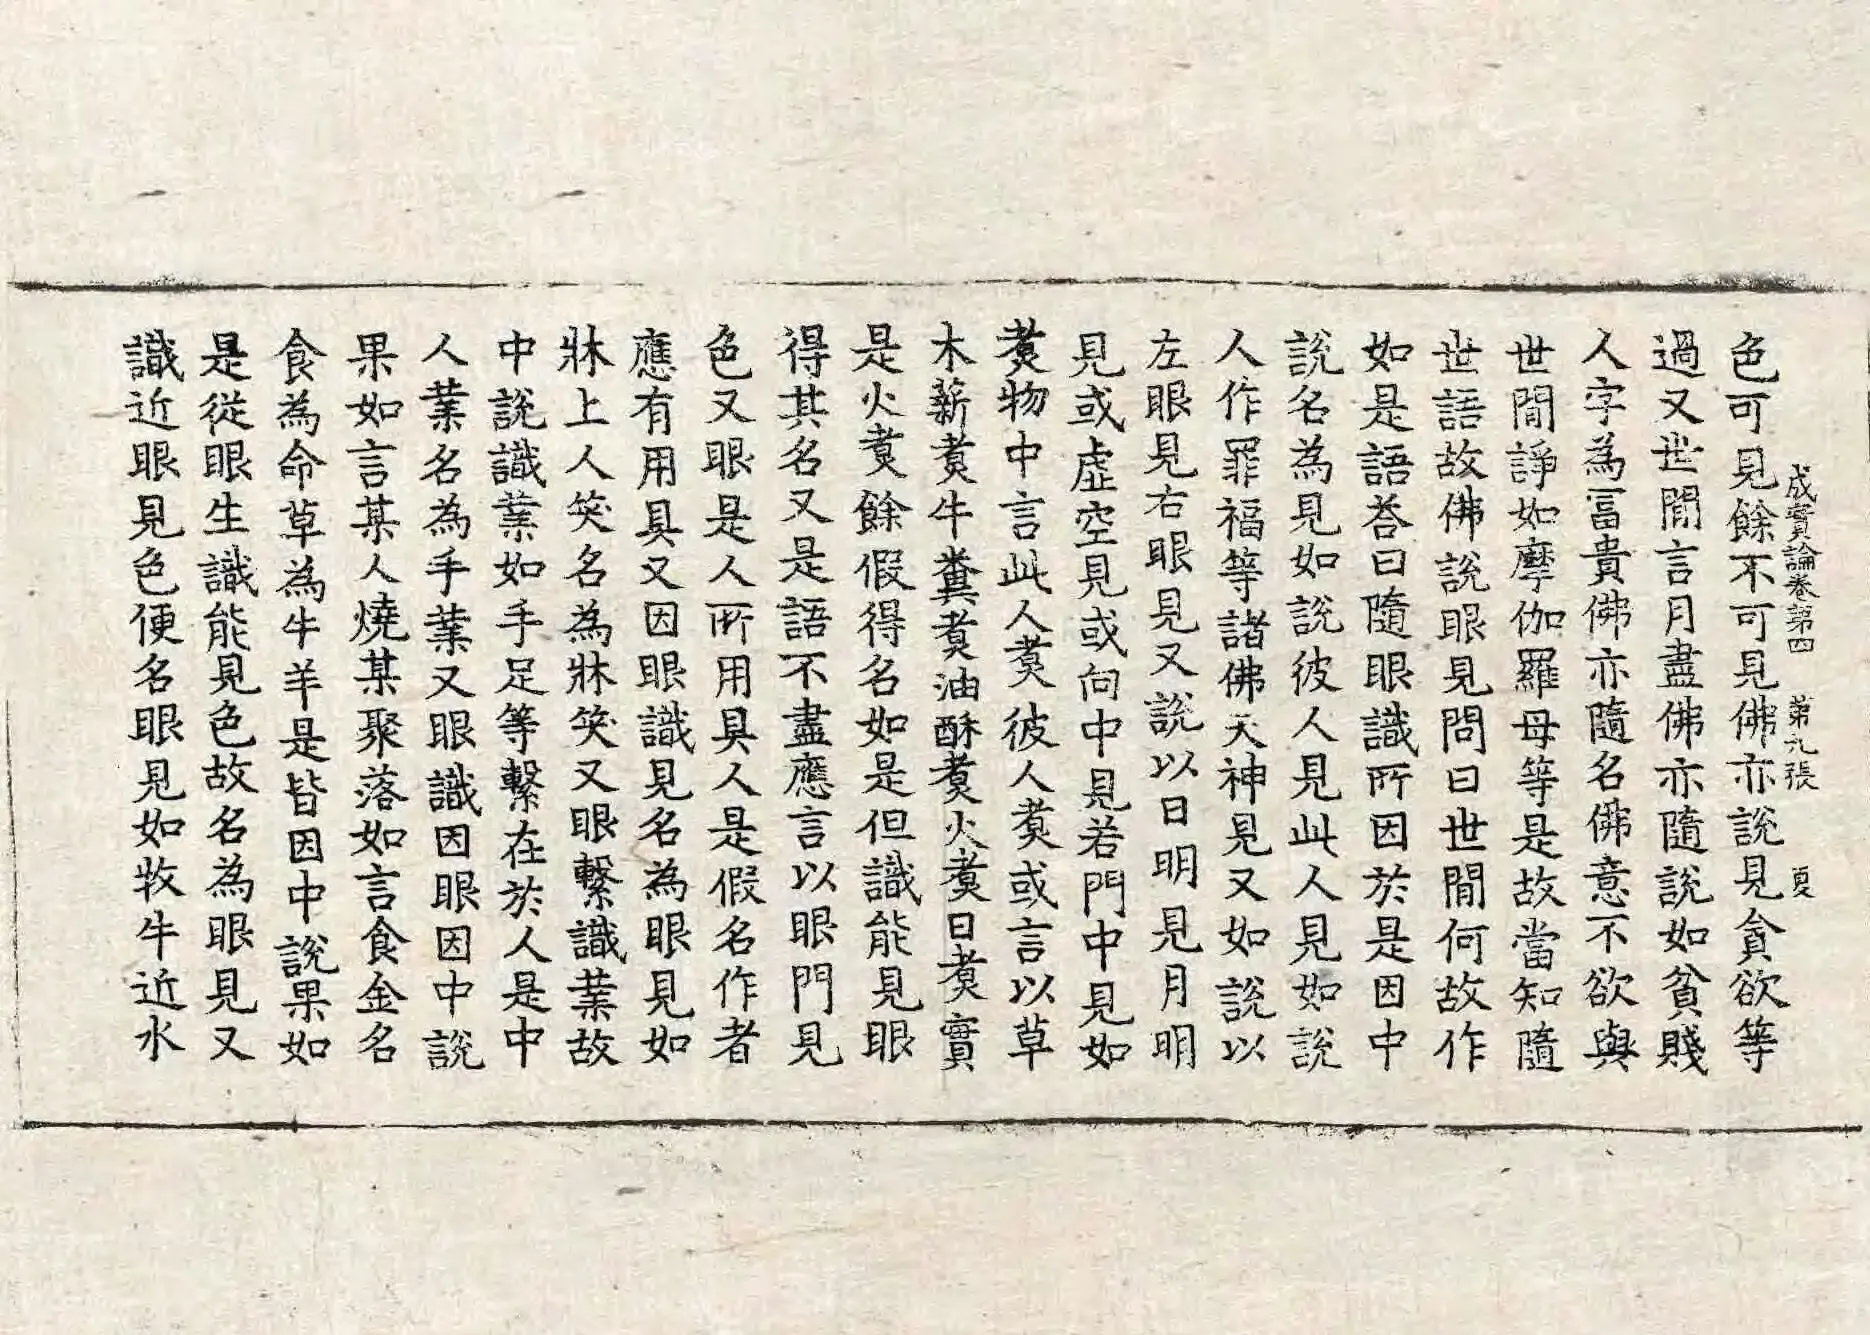 成實論卷第四　第九張　夏
色可見餘不可見佛亦說見貪欲等
過又世間言月盡佛亦隨說如貧賤
人字為富貴佛亦隨名佛意不欲與
世間諍如摩伽羅母等是故當知隨
世語故佛說眼見問曰世間何故作
如是語荅曰隨眼識所因於是因中
說名為見如說彼人見此人見如說
人作罪福等諸佛天神見又如說以
左眼見右眼見又說以日明見月明
見或虛空見或向中見若門中見如
煑物中言此人煑彼人煑或言以草
木薪煑牛糞煑油酥煑火煑日煑實
是火煑餘假得名如是但識能見眼
得其名又是語不盡應言以眼門見
色又眼是人所用具人是假名作者
應有用具又因眼識見名為眼見如
牀上人笑名為牀笑又眼繫識業故
中說識業如手足等繫在於人是中
人業名為手業又眼識因眼因中說
果如言某人燒某聚落如言食金名
食為命草為牛羊是皆因中說果如
是從眼生識能見色故名為眼見又
識近眼見色便名眼見如牧牛近水